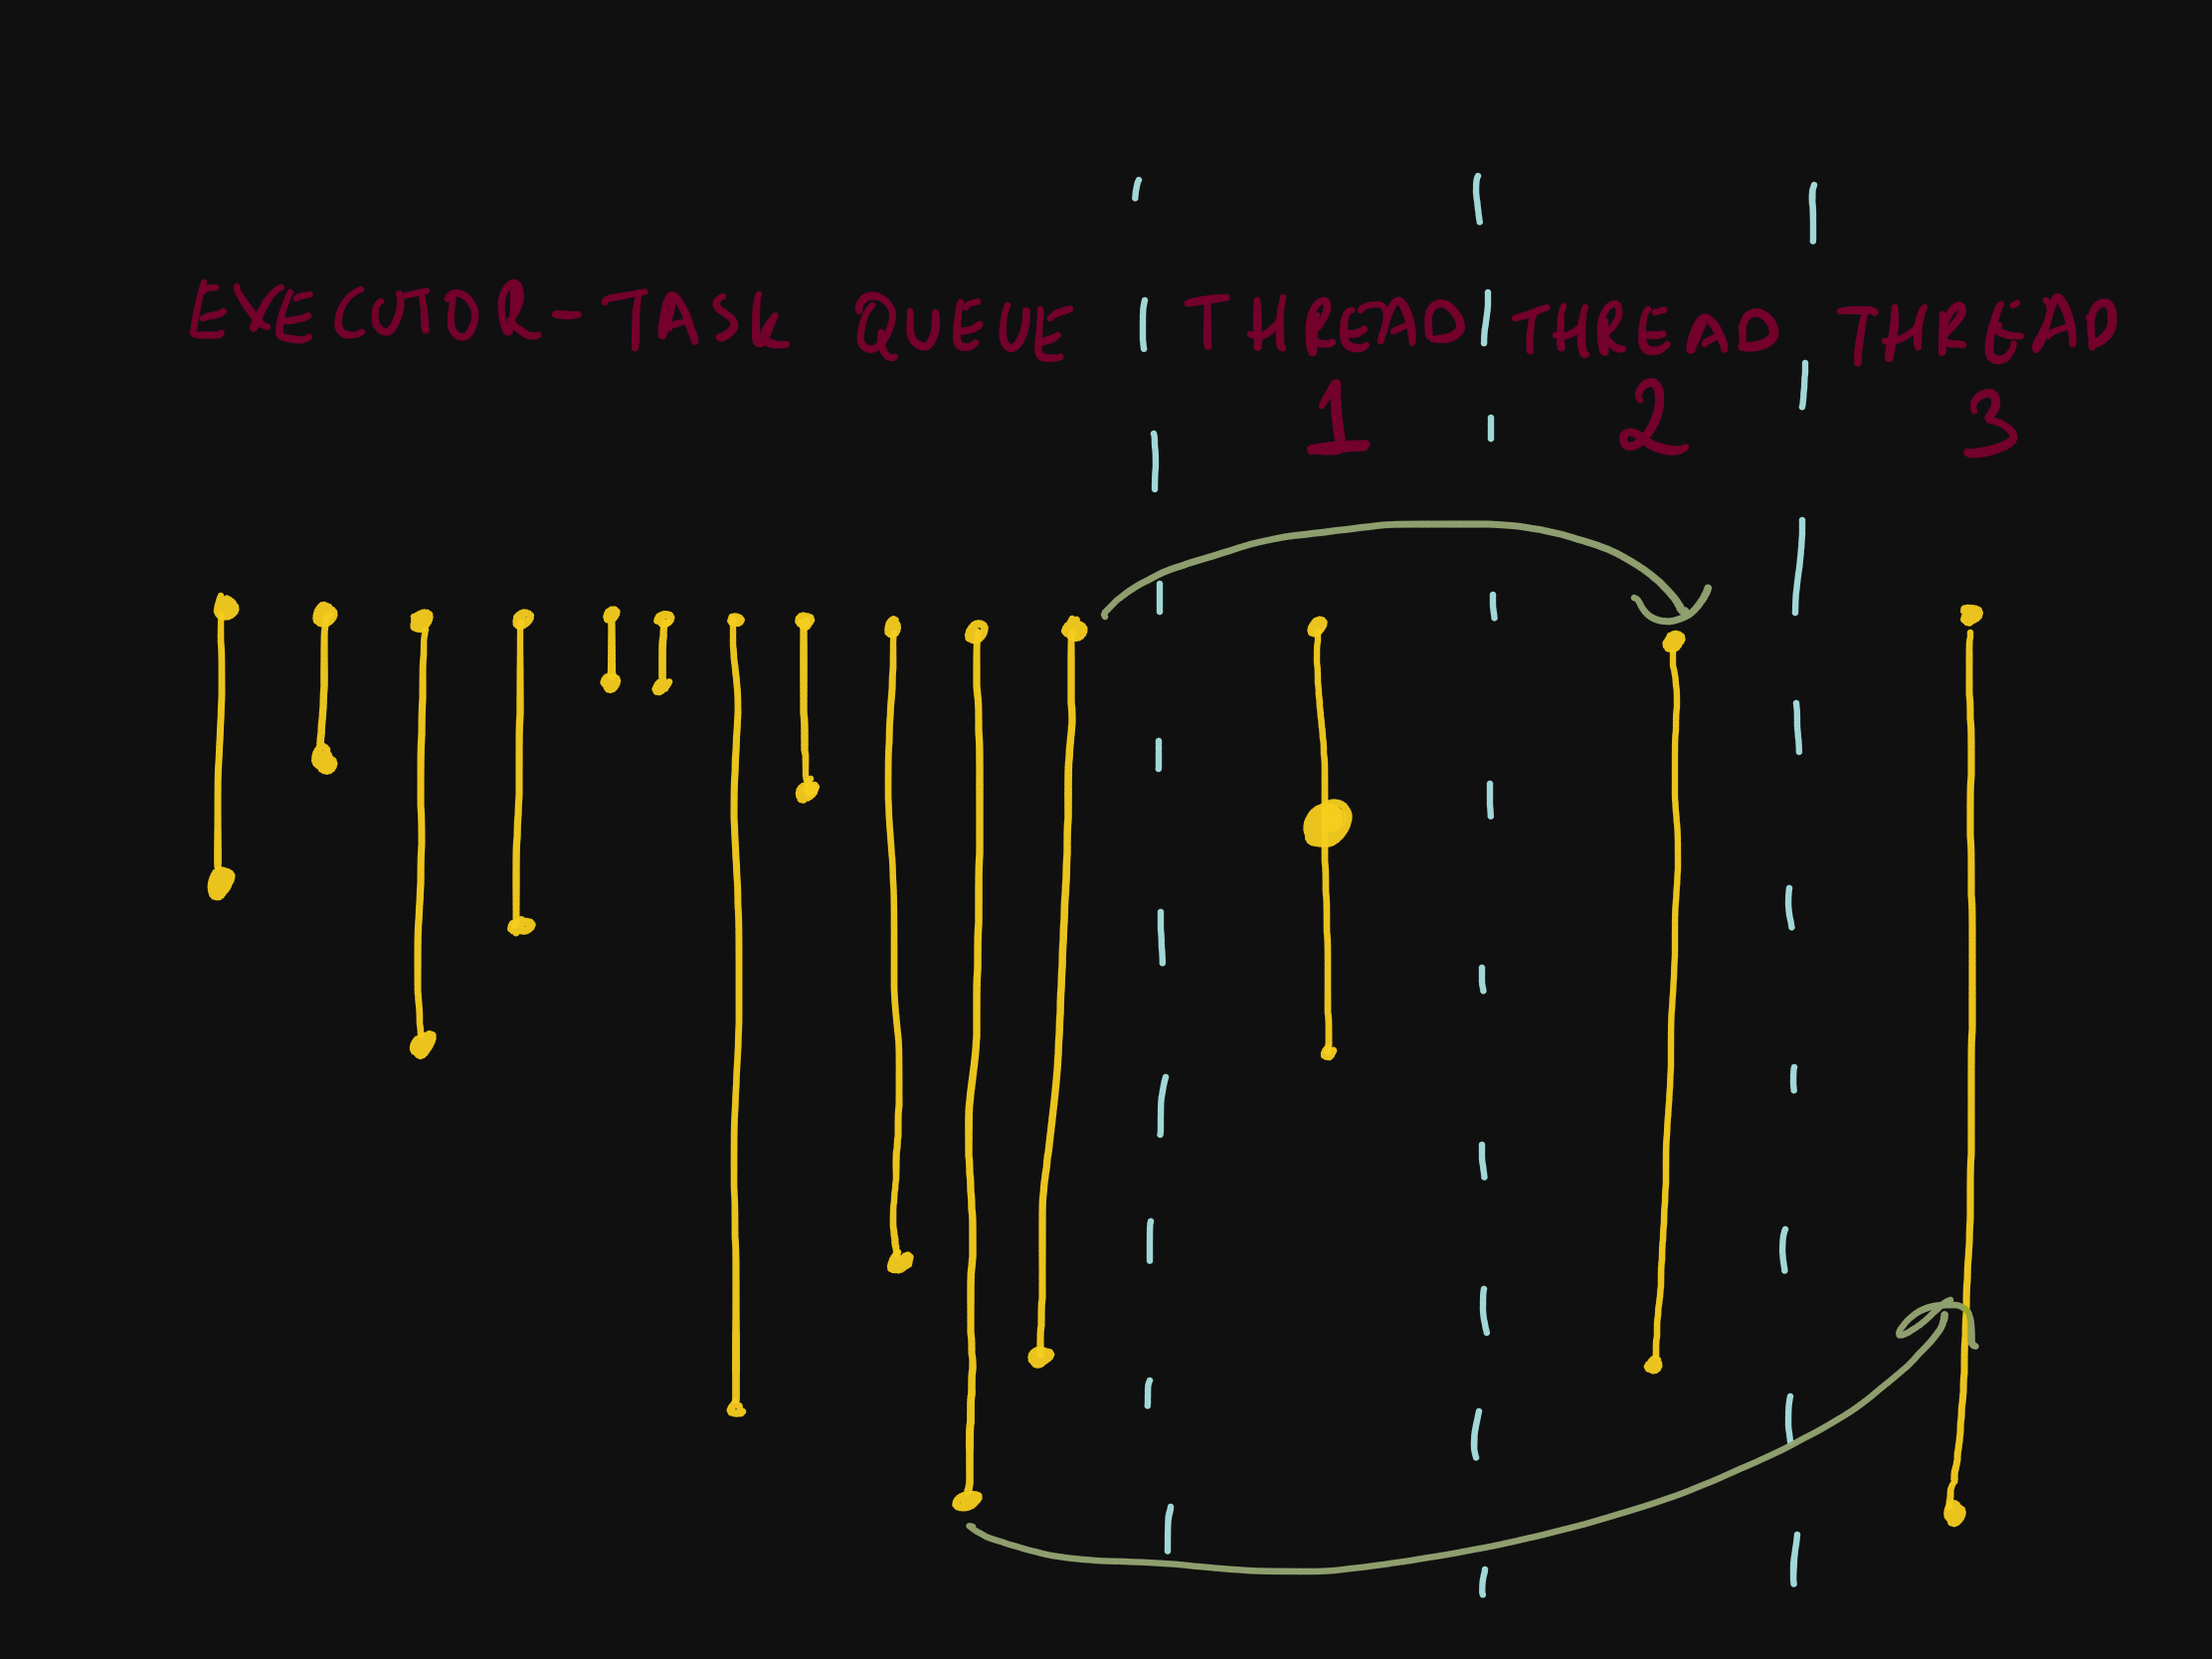 EXECUTOR-TASK QUEUE THREAD THREAD THREAD
1 2 3